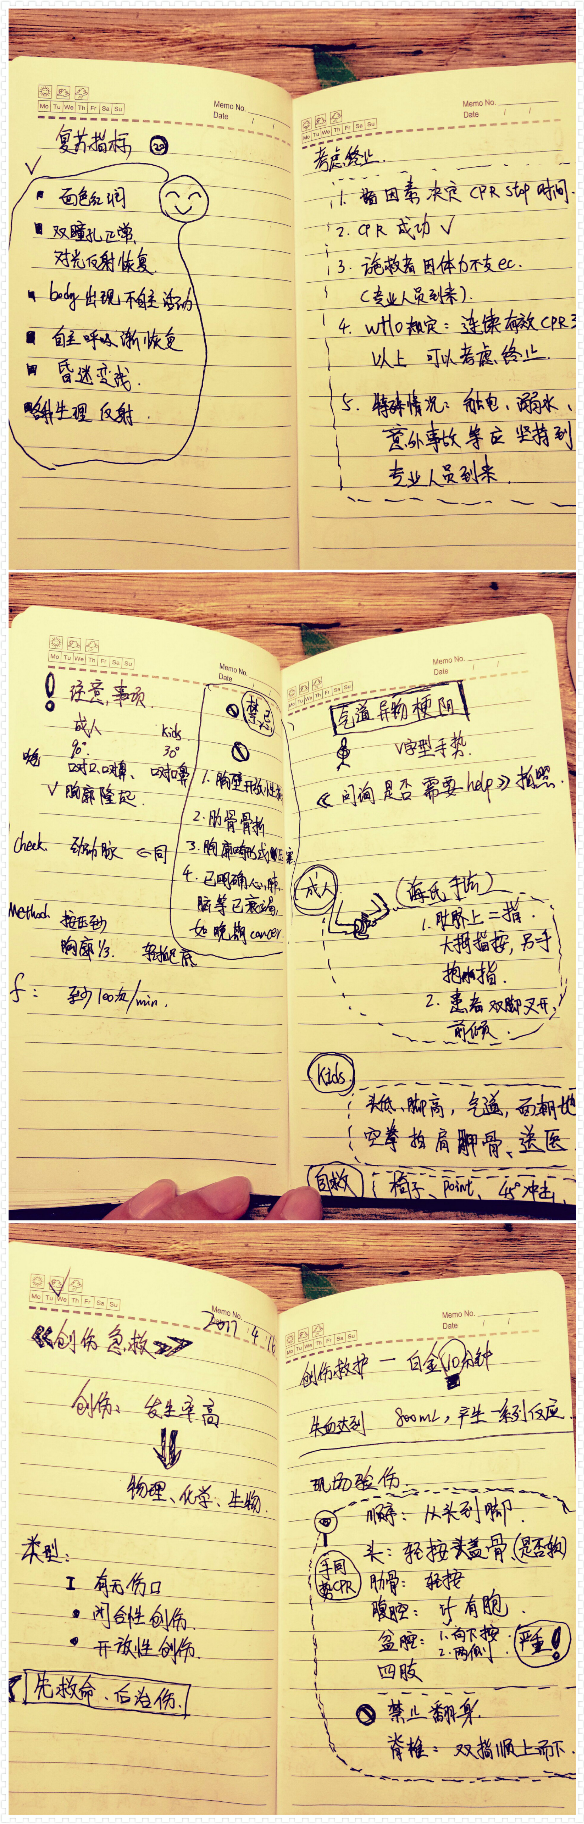 Memo No.
Mo Tu We Th Fr Sa Su
Date / /
复苏指标
面色红润
双瞳孔正常,
对光反射恢复.
body 出现不自主活动
自主呼吸渐恢复
昏迷变浅.
生理反射.
Memo No.
Mo Tu We Th Fr Sa Su
Date / /
考虑终止.
1. 因素决定 CPR stop 时间.
2. CPR 成功 √
3. 施救者因体力不支ec.
(专业人员到来).
4. WHO规定: 连续有效CPR3
以上 可以考虑终止.
5. 特殊情况: 触电、溺水、
意外事故等应坚持到
专业人员到来.
Memo No.
Mo Tu We Th Fr Sa Su
Date
注意事项
成人 kids.
90°. 30°
口对口.口对鼻、 口对口鼻
√ 胸廓隆起.
check. 颈动脉 ⇐同
Method. 按压到
胸廓1/3.
f: 至少100次/min.
禁忌
1. 胸壁开放性
2. 肋骨骨折
3. 胸廓畸形或
4. 已明确心、肺、
脑等已衰竭,
如晚期cancer.
Memo No.
Mo Tu We Th Fr Sa Su
Date / /
气道异物梗阻
V字型手势.
《 问询是否需要help》 拍照.
成人
(海氏手法)
1. 肚脐上二指.
大拇指按, 另手
抱拇指.
2. 患者双脚叉开,
前倾.
Kids.
头低、脚高, 气道, 面朝地
空拳拍肩胛骨、送医
自救
椅子、point、45°冲击,
Memo No.
Mo Tu We Th Fr Sa Su
Date
2017.4.16
《创伤急救》
创伤: 发生率高
物理、化学、生物.
类型:
I 有无伤口
闭合性创伤.
开放性创伤.
先救命、后治伤.
Memo No.
Mo Tu We Th Fr Sa Su
Date / /
创伤救护 — 白金10分钟
失血达到 800mL, 产生一系列反应.
现场验伤.
顺序: 从头到脚.
头: 轻按头盖骨 (是否软)
手同
势CPR
肋骨: 轻按
腹腔:
盆腔: 1. 向下按
2. 两侧
严重!
四肢
禁止翻身.
脊椎: 双指顺上而下.